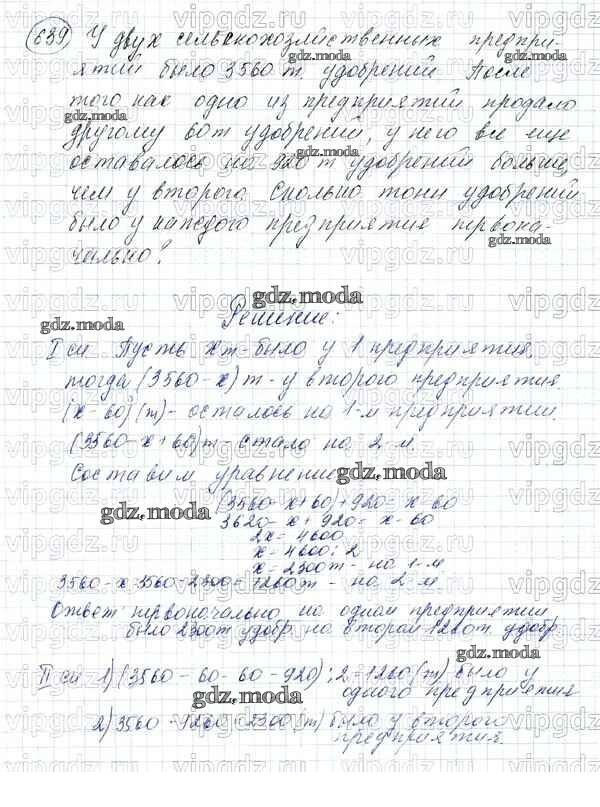 639 У двух сельскохозяйственных предпри-
ятий было 3560 т удобрений После
того как одно из предприятий продало
другому 60т удобрений, у него все еще
оставалось на 920 т удобрений больше,
чем у второго. Сколько тонн удобрений
было у каждого предприятия первона-
чально?
Решение:
I сп Пусть х т - было у 1 предприятия,
тогда (3560-х) т - у второго предприятия.
(х-60) (т) - осталось на 1-м предприятии.
(3560-х+60) т - стало на 2-м
Составим уравнение
(3560-х+60)+920=х-60
3620-х+920=х-60
2х=4600
х=4600:2
х=2300т - на 1-м
3560-х=3560-2300=1260т - на 2-м
Ответ первоначально на одном предприятии
было 2300т удобр. на втором 1260т. удобр
II сп 1) (3560-60-60-920):2=1260(т) было у
одного предприятия
2) 3560-1260=2300(т) было у второго
предприятия.
gdz.moda
vipgdz.ru